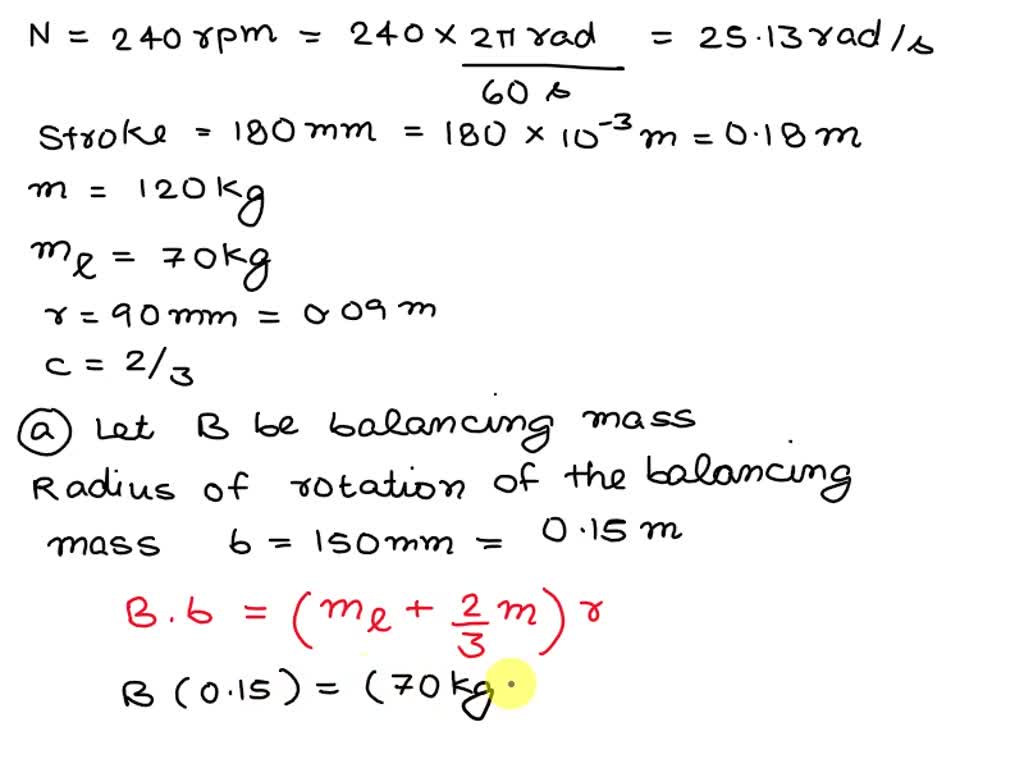 N = 240 rpm = 240 × 2π rad / 60 s = 25.13 rad/s
Stroke = 180 mm = 180 × 10⁻³ m = 0.18 m
m = 120 kg
mℓ = 70 kg
r = 90 mm = 0.09 m
c = 2/3
(a) Let B be balancing mass
Radius of rotation of the balancing
mass b = 150 mm = 0.15 m
B.b = (mℓ + 2/3 m) r
B (0.15) = (70 kg